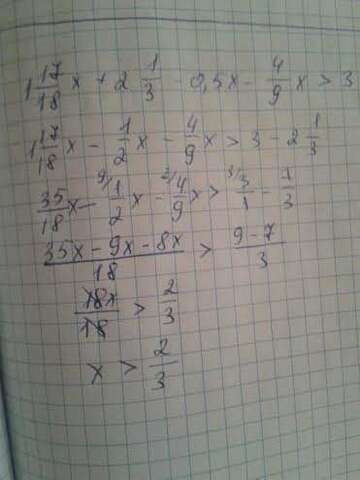 1 17/18 x + 2 1/3 - 0,5x - 4/9 x > 3
1 17/18 x - 1/2 x - 4/9 x > 3 - 2 1/3
35/18 x - 9/ 1/2 x - 2/ 4/9 x > 3/ 3/1 - 7/3
(35x - 9x - 8x)/18 > (9 - 7)/3
18x/18 > 2/3
x > 2/3